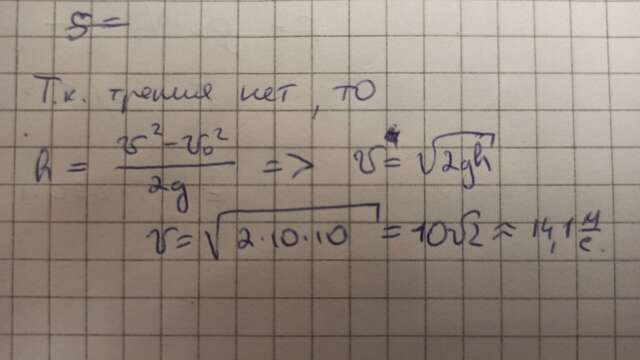 S =
Т.к. трения нет, то
h = (v² - v₀²)/2g => v = √2gh
v = √2·10·10 = 10√2 ≈ 14,1 м/с.